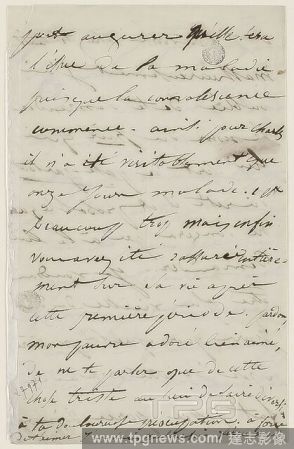 peut augurer qu'elle sera
l'issue de la maladie
puisque la convalescence
commence. ainsi pour Charles
il n'a été véritablement que
onze jours malade. c'est
beaucoup trop, mais enfin
vous avez été rassuré entière-
ment sur sa vie après
cette première période. pardon,
mon pauvre adoré bien aimé,
de ne te parler que de cette
chose triste au lieu de
à ta douloureuse préoccupation, à force
TPG
www.tpgimages.com 達志影像